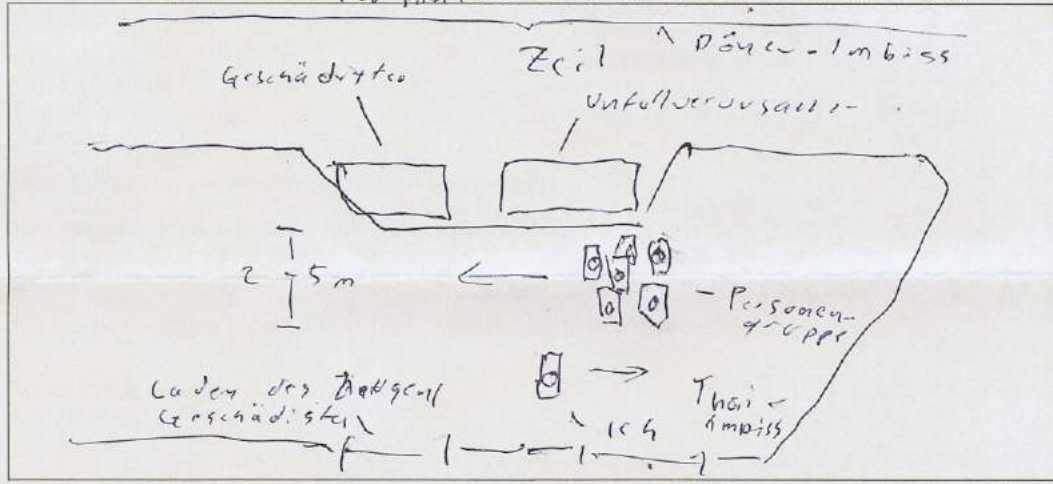 Döner-Imbiss
Zeil
Geschädigter
Unfallverursacher
2 5 m
Personen-
gruppe
Laden des
Geschädigten
Ich
Thai-
Imbiss